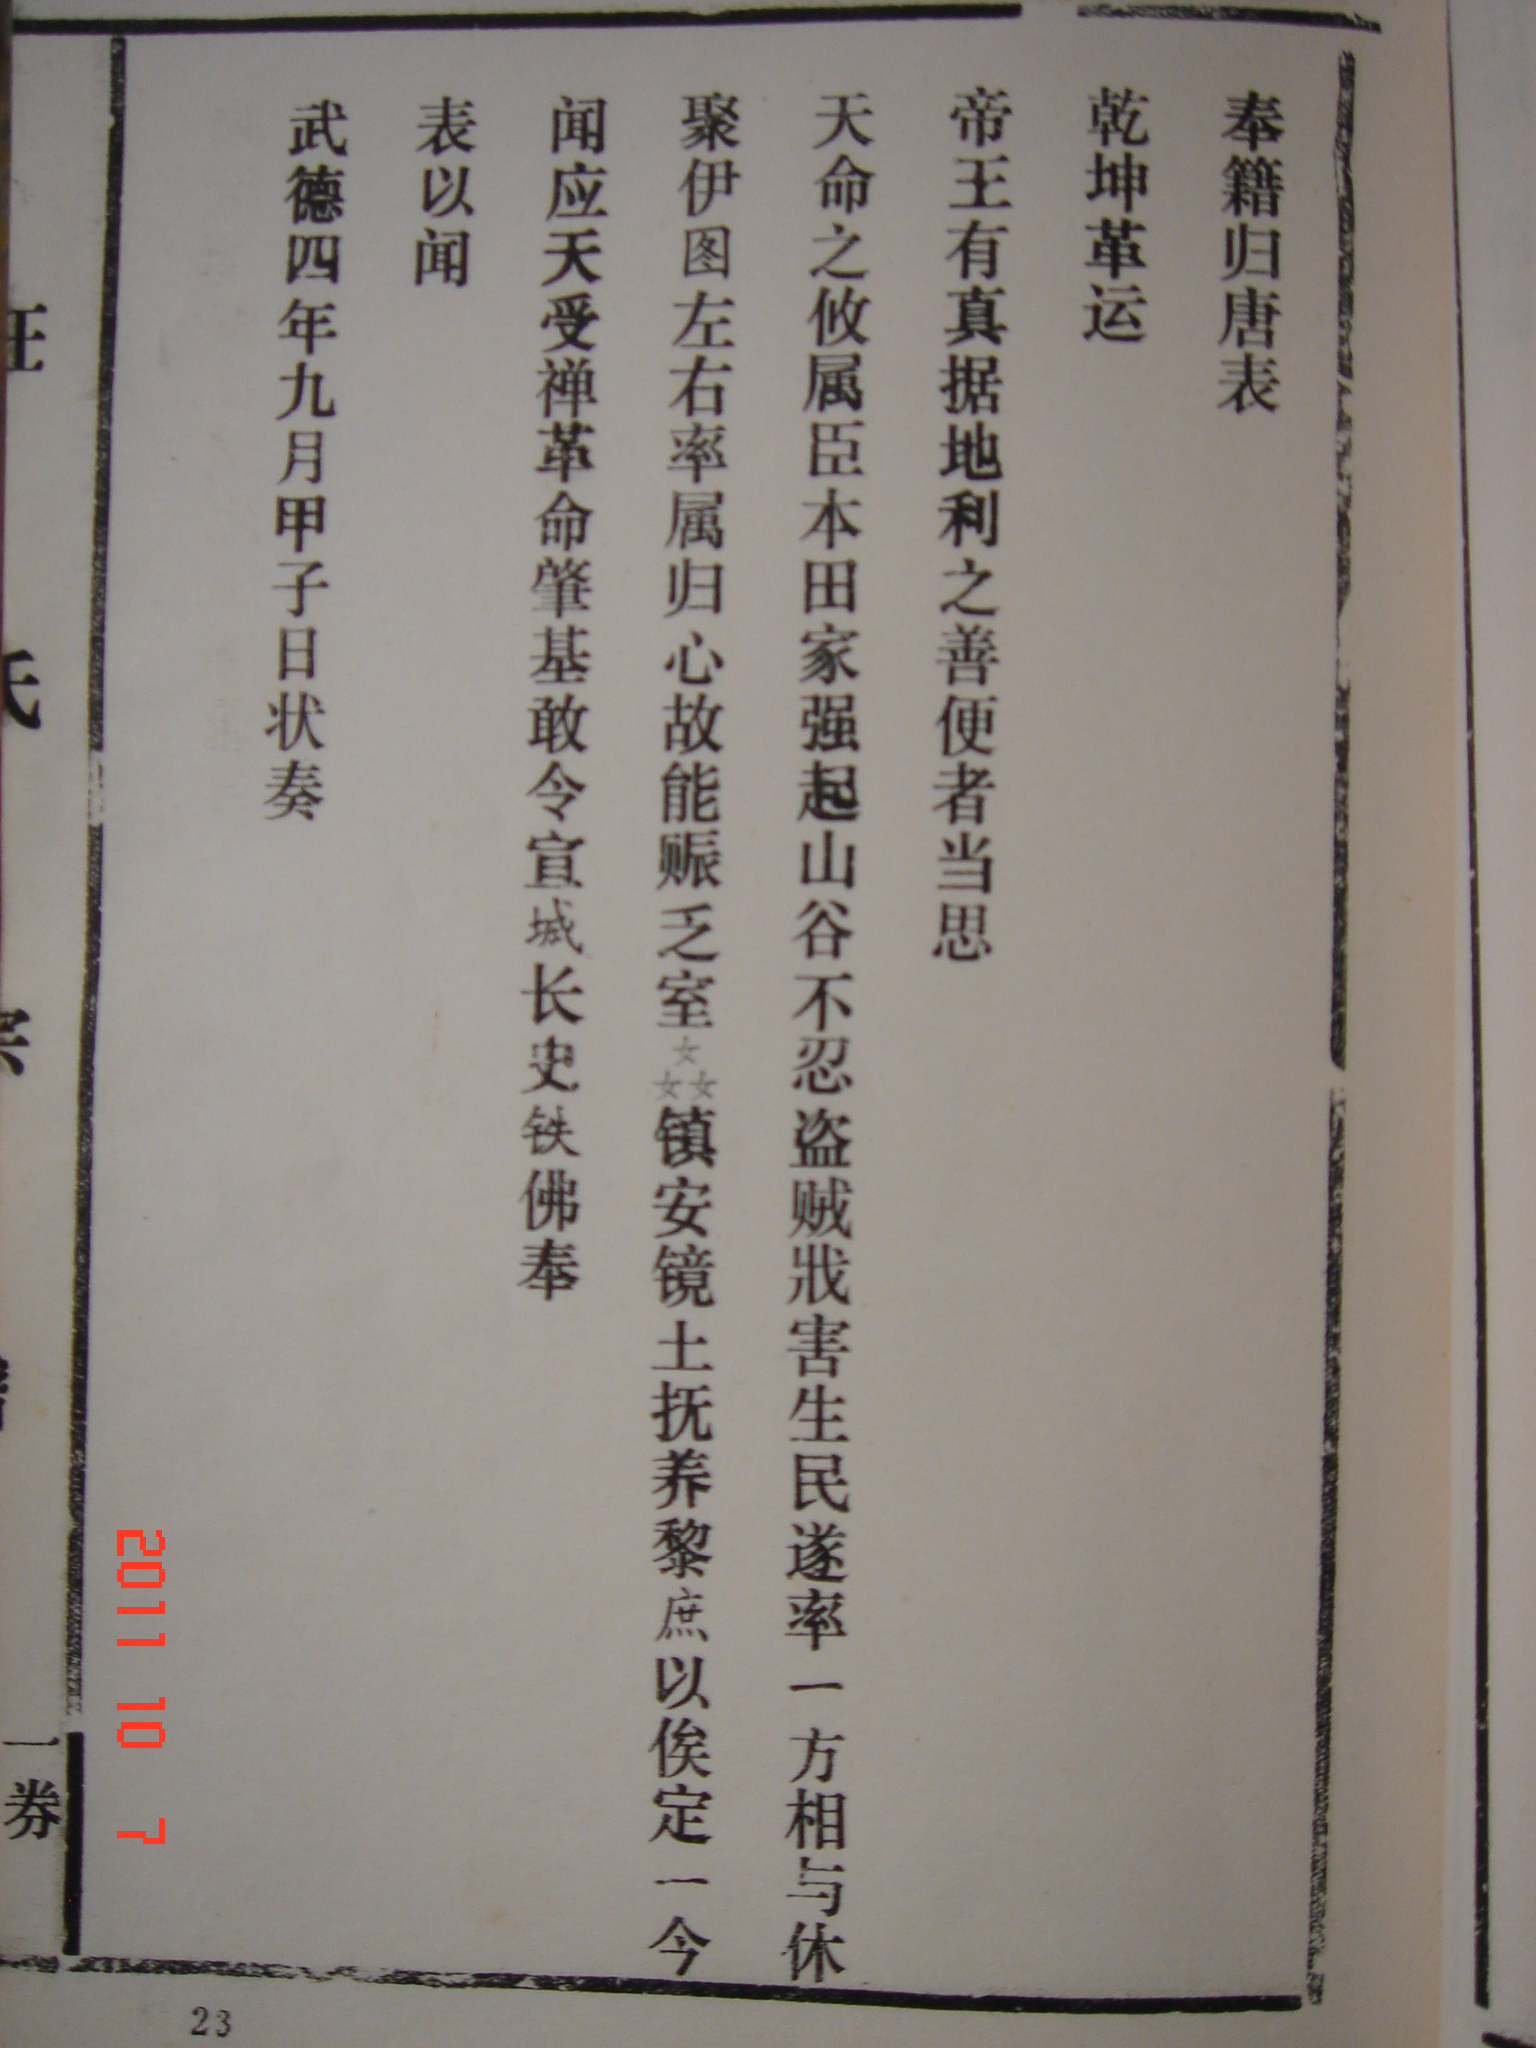 奉籍归唐表
乾坤革运
帝王有真据地利之善便者当思
天命之攸属臣本田家强起山谷不忍盗贼戕害生民遂率一方相与休
聚伊图左右率属归心故能赈乏室镇安镜土抚养黎庶以俟定一今
闻应天受禅革命肇基敢令宣城长史铁佛奉
表以闻
武德四年九月甲子日状奏
汪氏宗谱
一券
23
2011 10 7